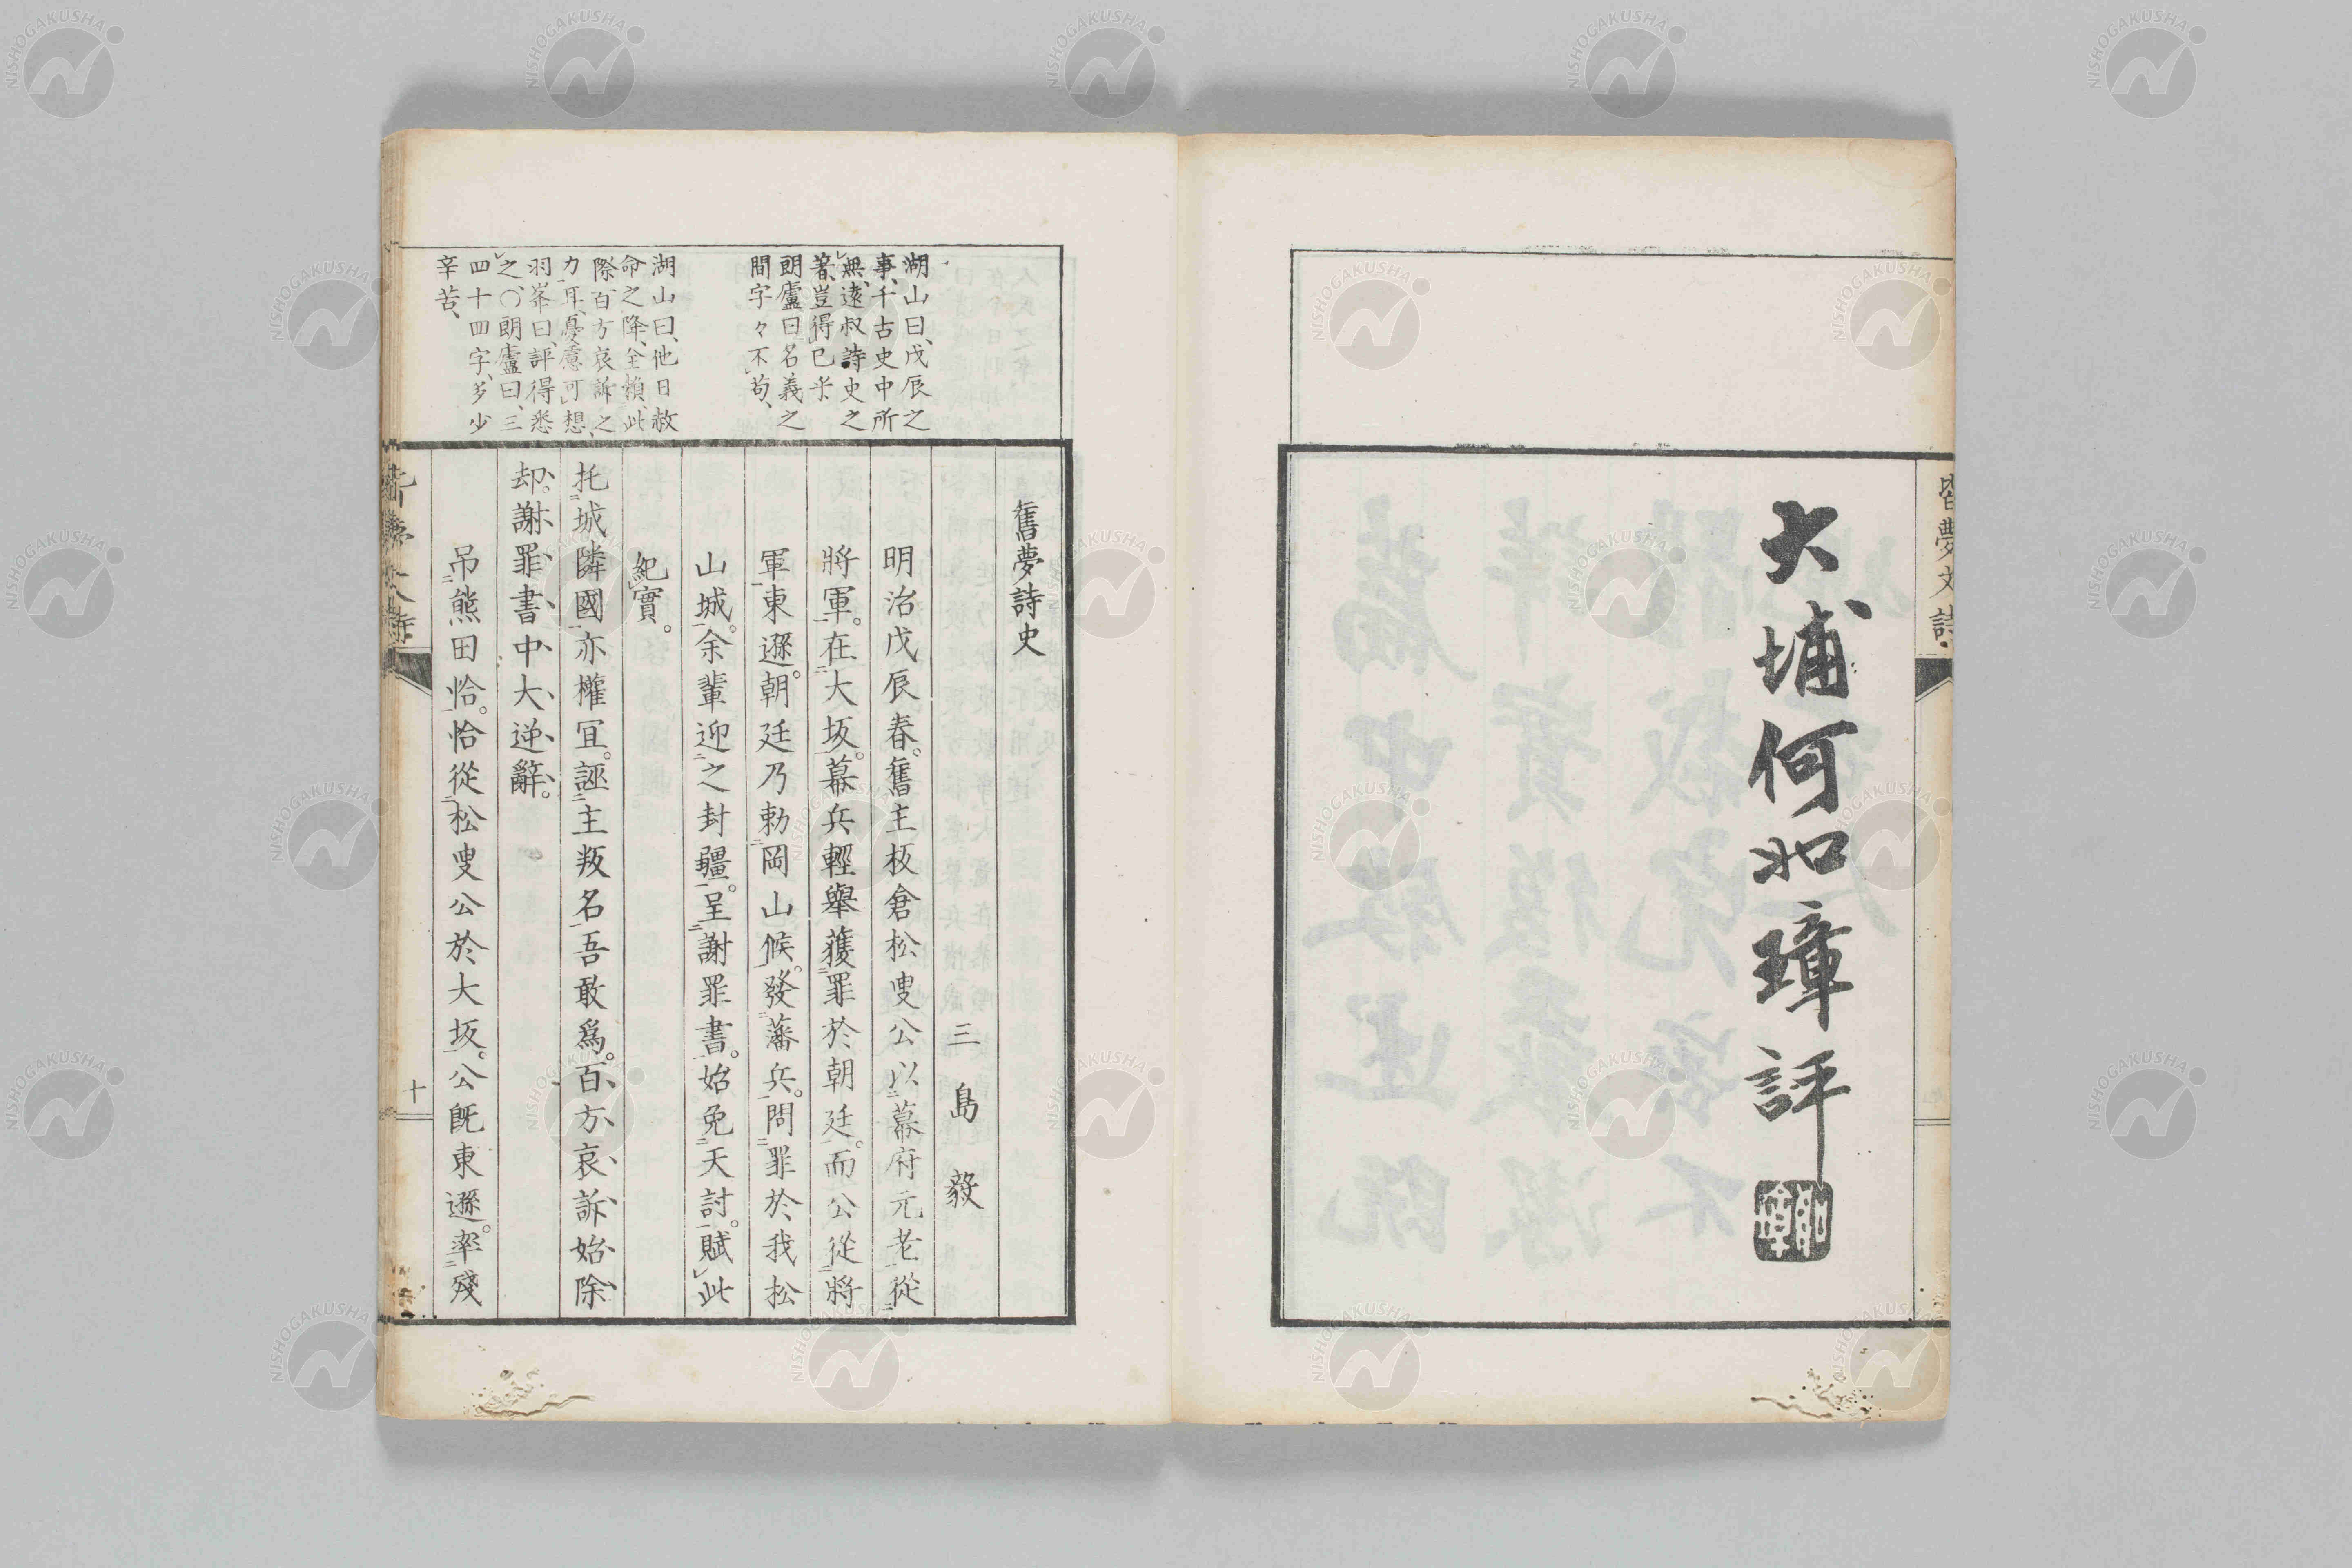 大埔何如璋評
舊夢詩史
三島毅
明治戊辰春。舊主板倉松叟公以幕府元老從
將軍。在大坂。幕兵輕舉獲罪於朝廷。而公從將
軍東遜。朝廷乃勅岡山候。發藩兵。問罪於我松
山城。余輩迎之封疆。呈謝罪書。始免天討。賦此
紀實。
托城隣國亦權冝。誣主叛名吾敢爲。百方哀訴始除
却。謝罪書中大逆辭。
吊熊田恰。恰從松叟公於大坂。公既東遜。率殘
湖山曰、戊辰之
事、千古史中所
無、遠叔詩史之
著、豈得已乎
朗廬曰、名義之
間字々不苟、
湖山曰、他日赦
命之降、全頼此
際、百方哀訴之
力耳、憂慮可想、
羽峯曰、評得悉
之、〇朗廬曰、三
四十四字、多少
辛苦、
十
NISHOGAKUSHA